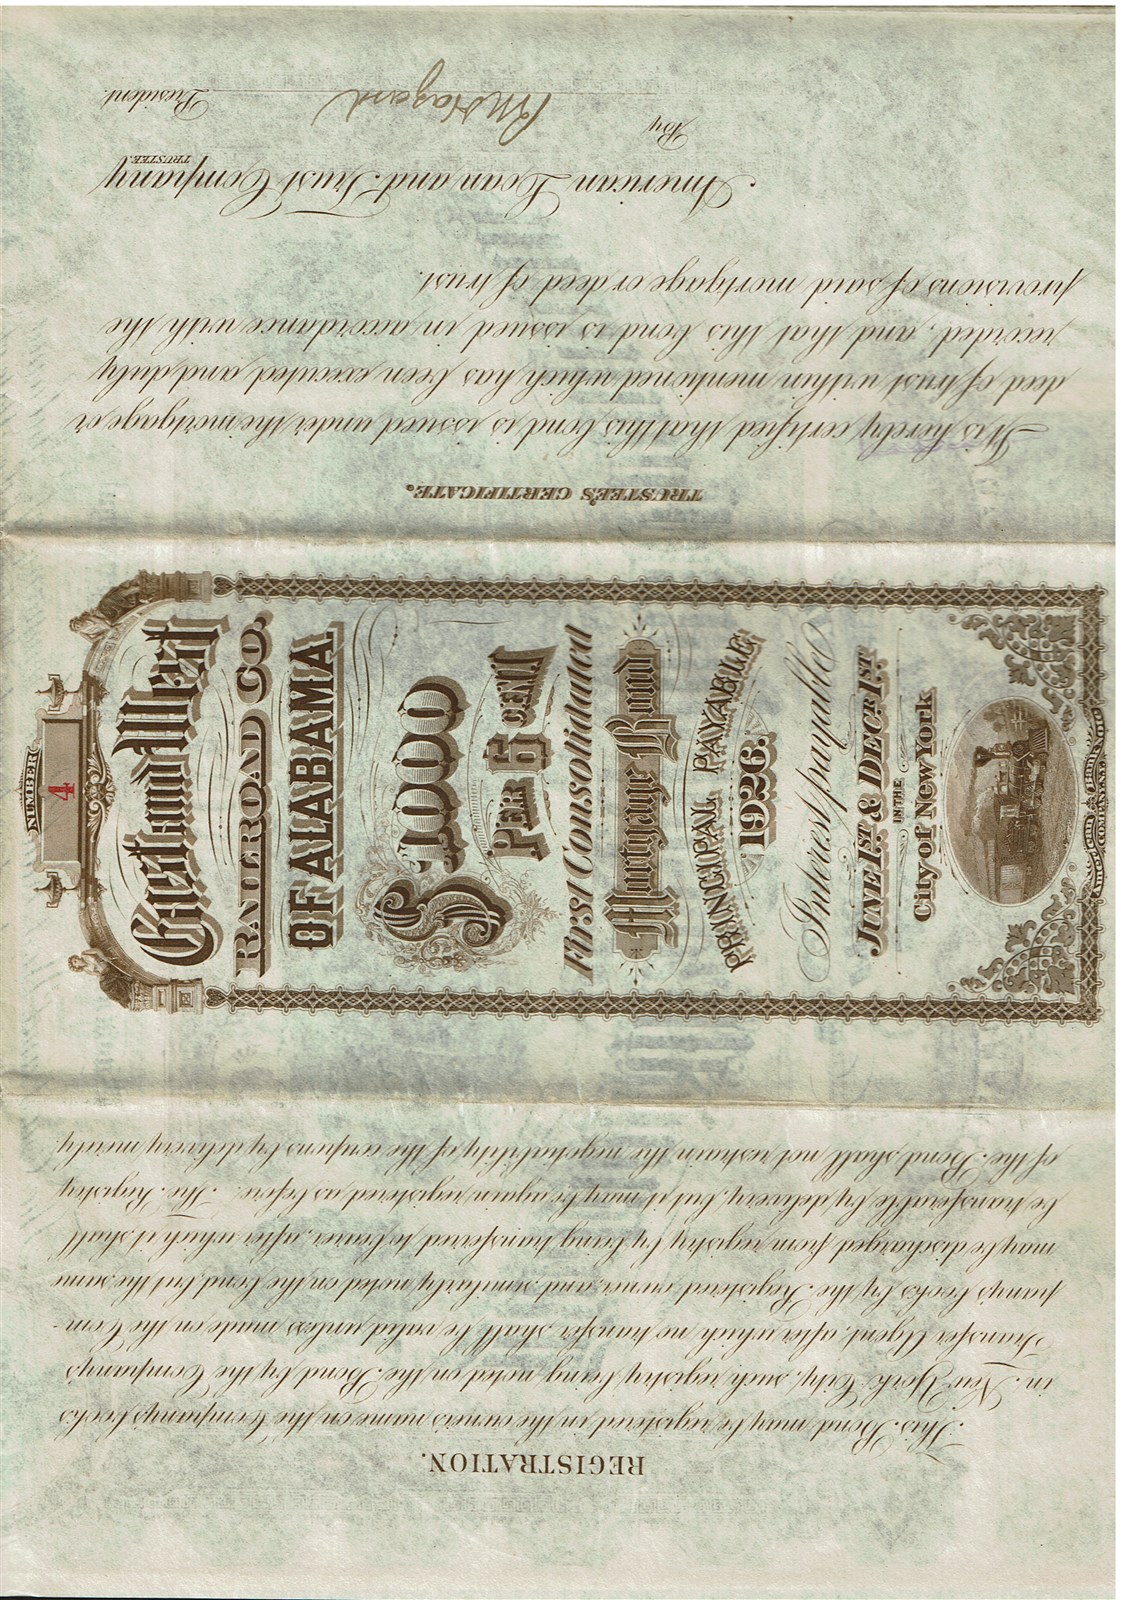 REGISTRATION.
This Bond may be registered in the owner's name on the Company's books
in New York City, such registry being noted on the Bond by the Company's
Transfer Agent, after which no transfer shall be valid unless made on the Com-
pany's books by the Registered owner, and similarly noted on the bond but the same
may be discharged from registry by being transferred to bearer, after which it shall
be transferable by delivery, but it may be again registered as before. The Registry
of the Bond shall not restrain the negotiability of the coupons by delivery merely.
NUMBER
4
East and West
RAILROAD CO.
OF ALABAMA.
$1000
PER 6 CENT.
First Consolidated
Mortgage Bond
PRINCIPAL PAYABLE
1926.
Interest payable
JUNE 1ST & DECR 1ST
IN THE
City of New York
American Bank Note
COMPANY
TRUSTEE'S CERTIFICATE.
It is hereby certified that this bond is issued under the mortgage or
deed of trust within mentioned which has been executed and duly
recorded, and that this bond is issued in accordance with the
provisions of said mortgage or deed of trust.
American Loan and Trust Company
TRUSTEE.
By Hazard President.